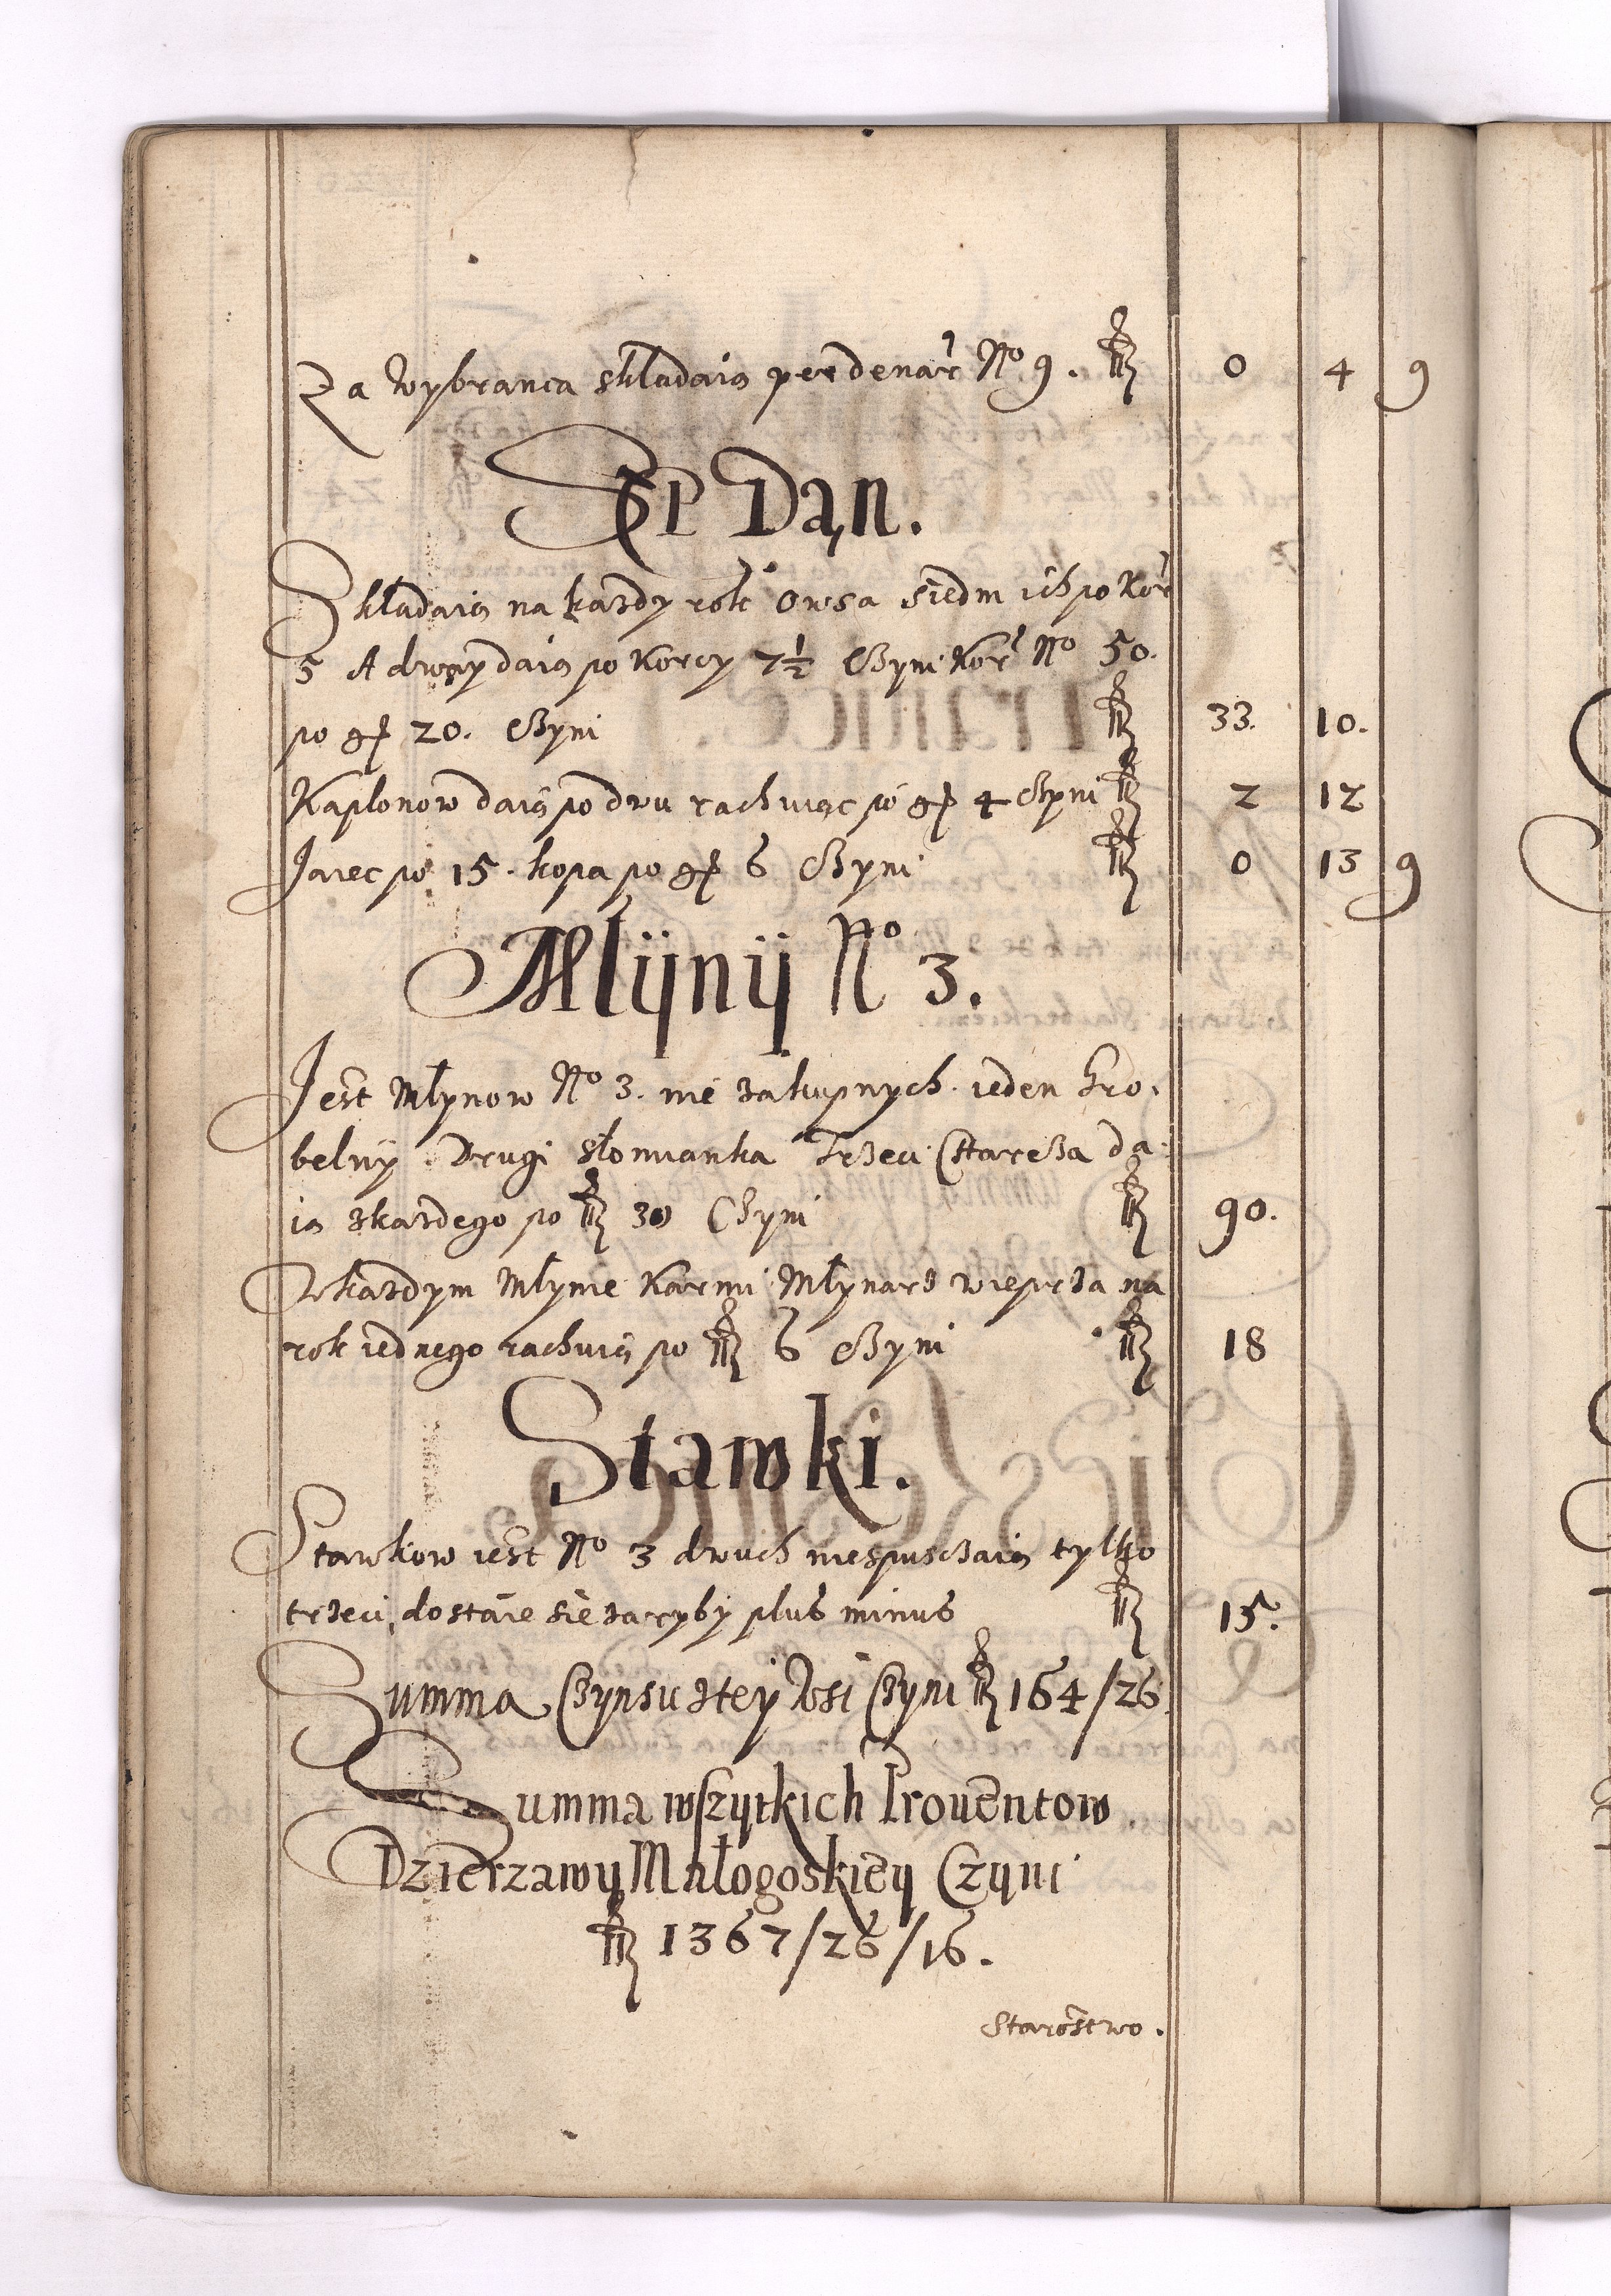 Za wybranca składaią per denar No 9. fl 0 4 9
Sep Dan.
Składaią na kazdy rok Owsa siedm ich po Kor
5 A dwaÿ daią po Korcy 7½ Czyni Kor No 50.
po gr 20. Czyni fl 33. 10.
Kapłonow daią po dwu rachuiąc po gr 4 Czyni fl 2 12
Jaiec po 15. kopa po gr 6 Czyni fl 0 13 9
Mlÿnÿ No 3.
Jest Młynow No 3. nie zakupnych ieden Hro-
belnÿ Drugi słomianka Trzeci Starcza da-
ią zkazdego po fl 30 Czyni fl 90.
Wkazdym Młynie Karmi Młynarz wieprza na
rok iednego rachuią po fl 6 Czyni fl 18
Stawki.
Stawkow iest No 3 dwuch niespusczaią tylko
trzeci, dostaie sie zaryby plus minus fl 15.
Summa Czynsu ztey Wsi Czyni fl 164/26
Summa wszytkich Prouentow
Dzierzawy Małogoskieÿ Czyni
fl 1367/26/16.
Starostwo.